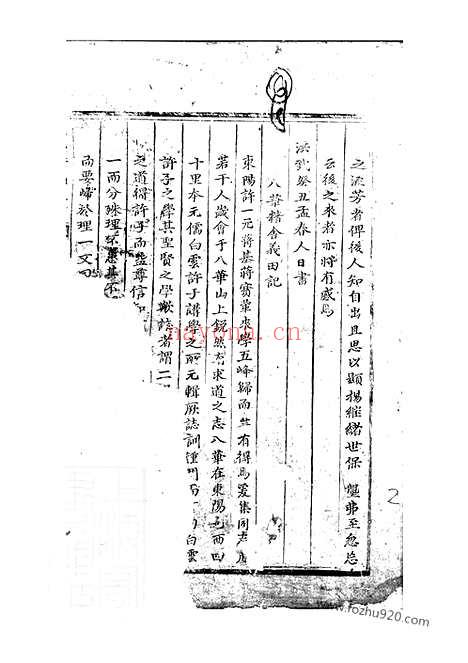 之流芳者俾後人知自出且思以顯揚繼緒世保 弗至忽忘
云後之來者亦將有感焉
洪武癸丑孟春人日書
八華精舍義田記
東陽許一元蔣基蔣寶軍來學五峰歸而 有得焉爰集同志
若干人歲會于八華山上銳然有求道之志八華在東陽 西四
十里奉元儒白雲許子講學之所元輯厥誌訓 白雲
許子之學其聖賢之學歟 者謂二
之道得許子而益尊信
一而分殊理不患其不
而要歸於理一又曰
nayona.cn
2
www.fozhu920.com